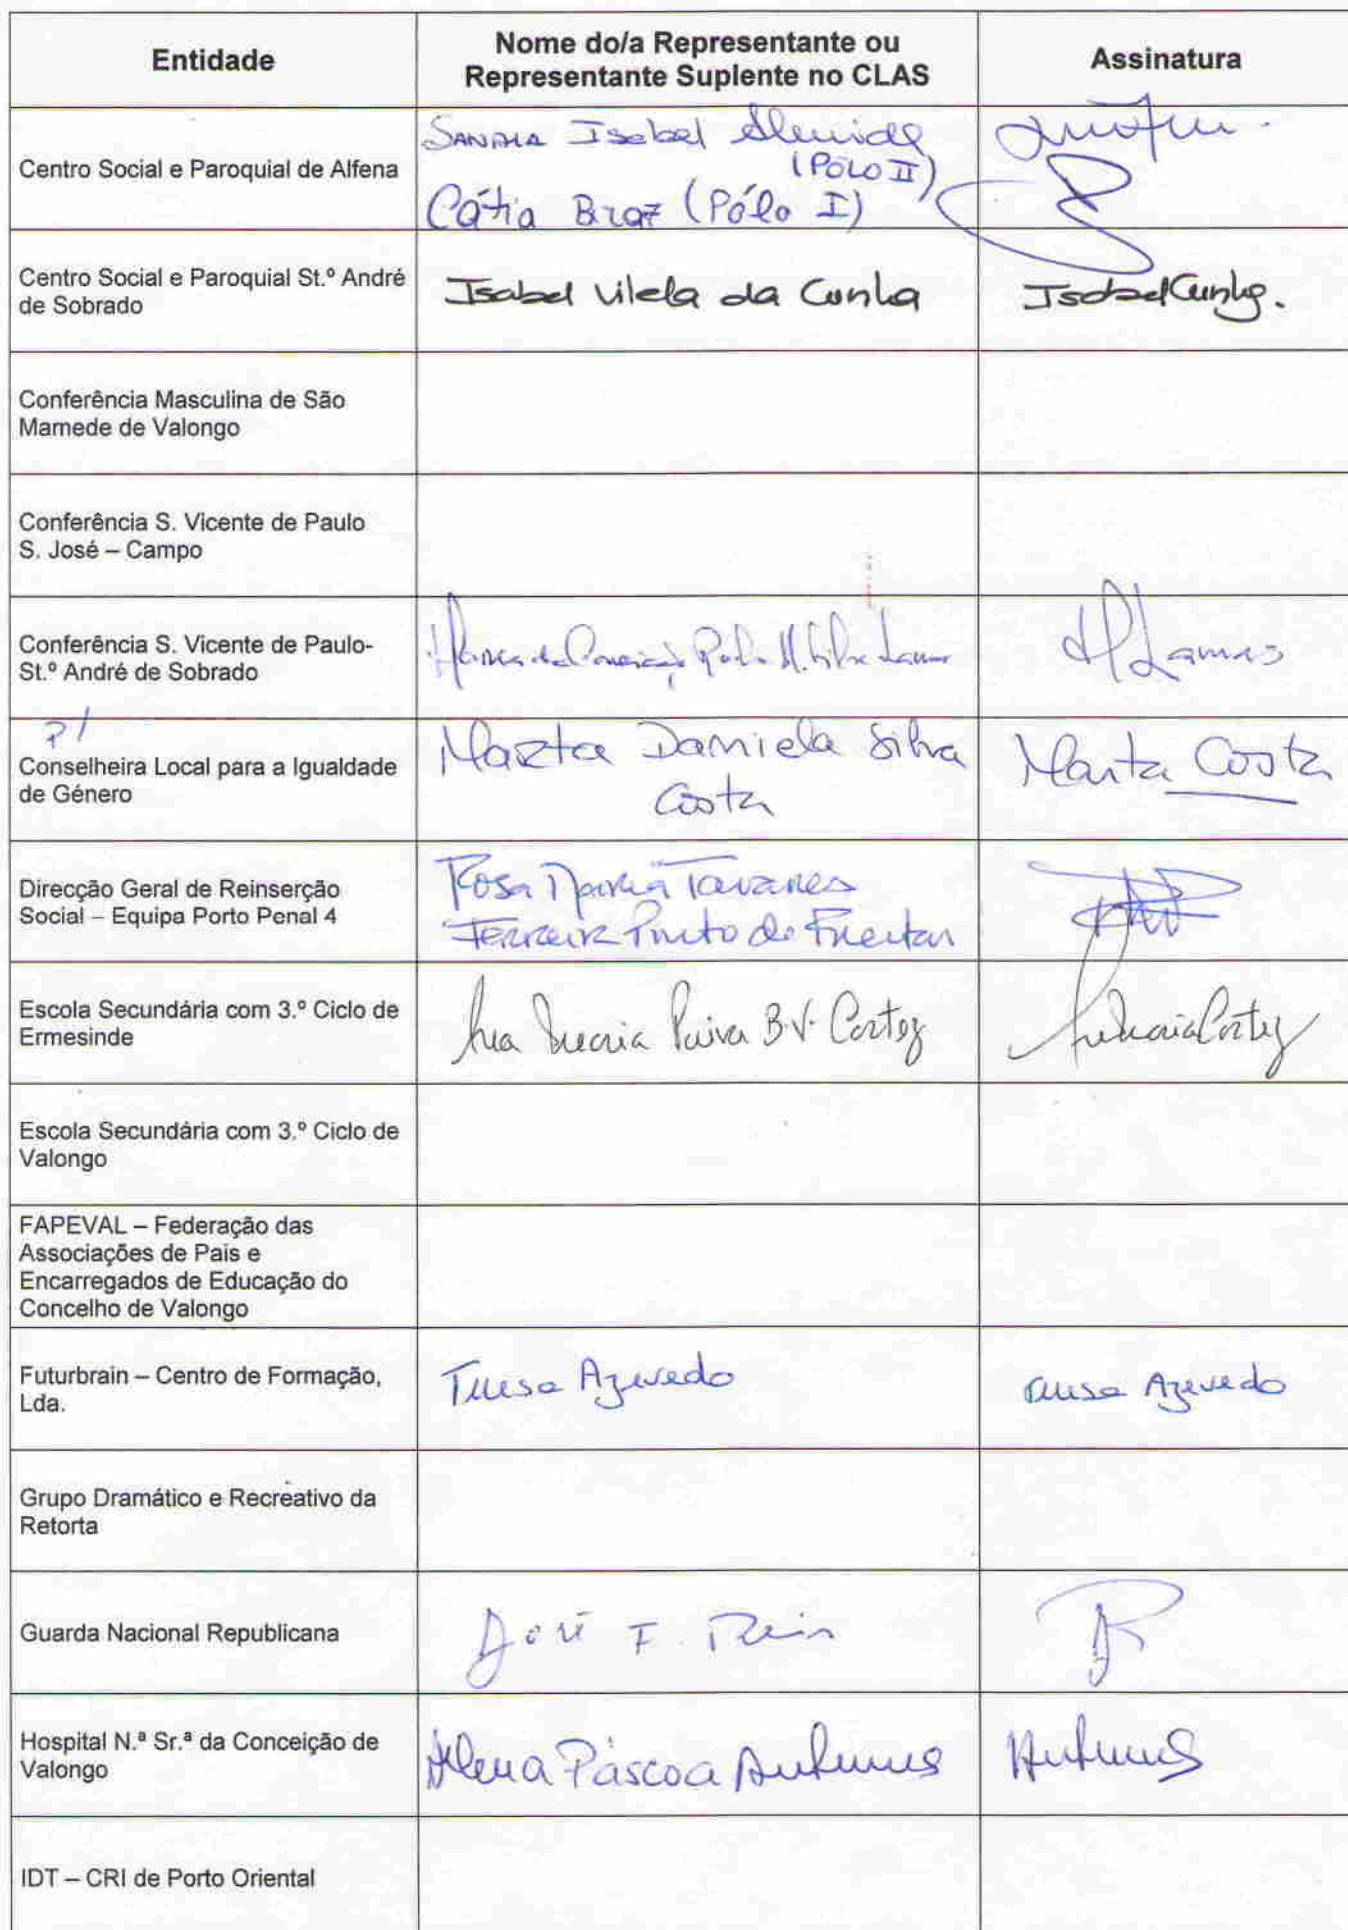 Entidade
Nome do/a Representante ou
Representante Suplente no CLAS
Assinatura
Centro Social e Paroquial de Alfena
Sandra Isabel Almeida
(Pólo II)
Cátia Braz (Pólo I)
Centro Social e Paroquial St.º André
de Sobrado
Isabel Vilela da Cunha
Isabel Cunha.
Conferência Masculina de São
Mamede de Valongo
Conferência S. Vicente de Paulo
S. José – Campo
Conferência S. Vicente de Paulo-
St.º André de Sobrado
Maria da Conceição M. Silva Lamas
Lamas
P/
Conselheira Local para a Igualdade
de Género
Marta Daniela Silva
Costa
Marta Costa
Direcção Geral de Reinserção
Social – Equipa Porto Penal 4
Rosa Maria Tavares
Ferreira Pinto de Freitas
Escola Secundária com 3.º Ciclo de
Ermesinde
Ana Maria Paiva B. V. Cortez
Ana Maria Cortez
Escola Secundária com 3.º Ciclo de
Valongo
FAPEVAL – Federação das
Associações de Pais e
Encarregados de Educação do
Concelho de Valongo
Futurbrain – Centro de Formação,
Lda.
Teresa Azevedo
Teresa Azevedo
Grupo Dramático e Recreativo da
Retorta
Guarda Nacional Republicana
José F. Reis
Hospital N.ª Sr.ª da Conceição de
Valongo
Páscoa Antunes
Antunes
IDT – CRI de Porto Oriental